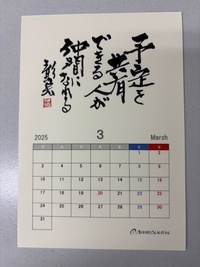 予定を
共有
できる人が
仲間になれる
2025
3
March
1 2
3 4 5 6 7 8 9
10 11 12 13 14 15 16
17 18 19 20 21 22 23
24 25 26 27 28 29 30
31